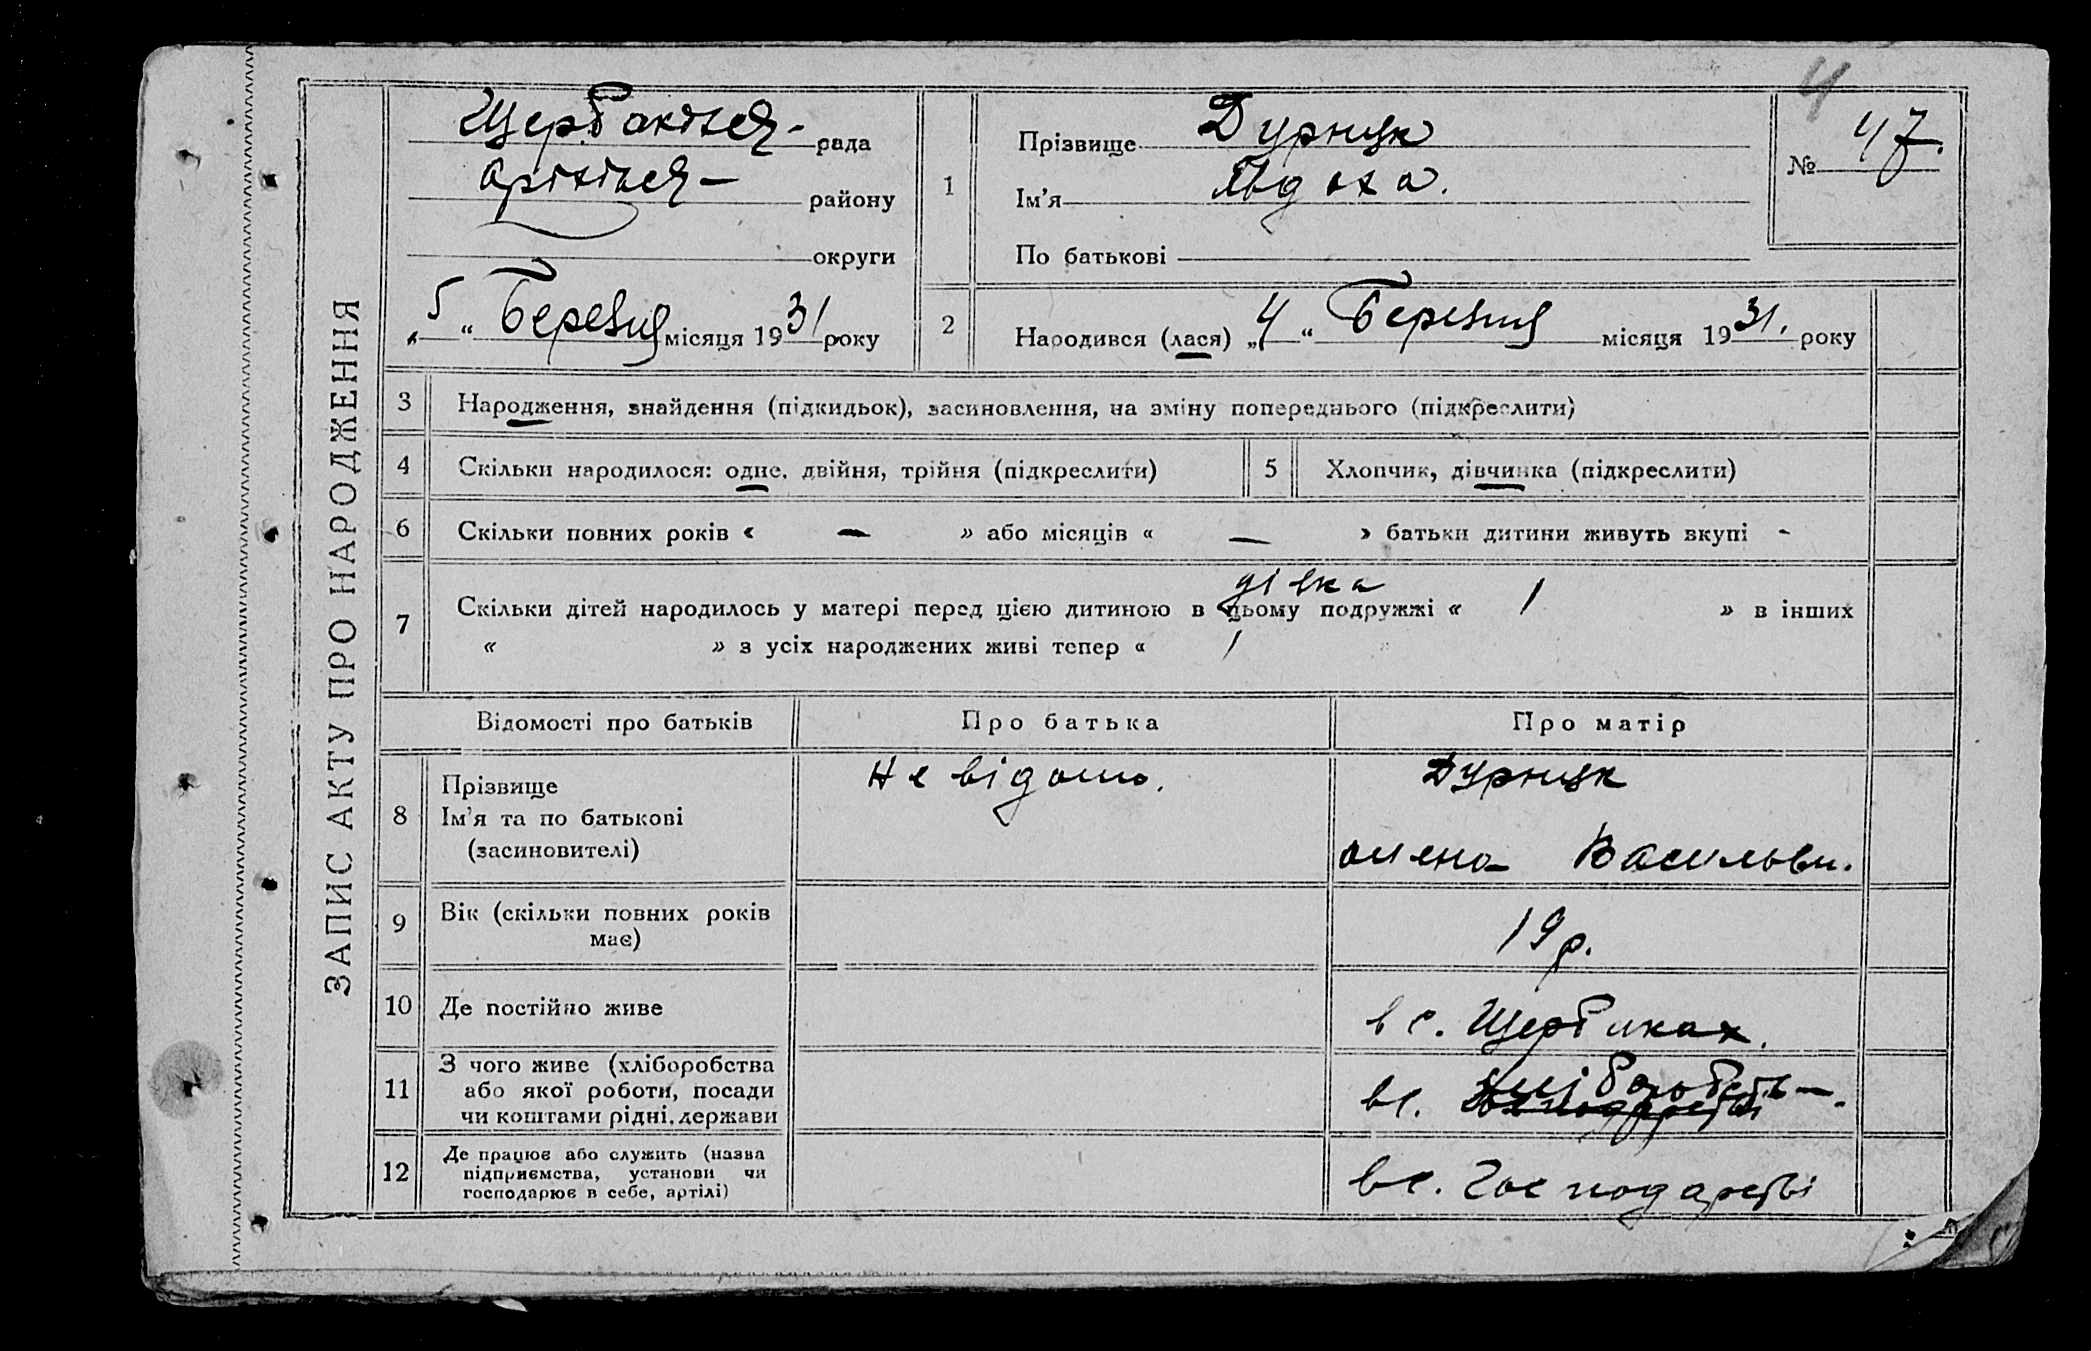 4
ЗАПИС АКТУ ПРО НАРОДЖЕННЯ
Щербаківська рада
району
округи
„5“ Березня місяця 1931 року
1 Прізвище Дурницк
Ім'я Явдоха.
По батькові
№ 47.
2 Народився (лася) „4“ Березня місяця 1931. року
3 Народження, знайдення (підкидьок), засиновлення, на зміну попереднього (підкреслити)
4 Скільки народилося: одне, двійня, трійня (підкреслити)
5 Хлопчик, дівчинка (підкреслити)
6 Скільки повних років « — » або місяців « — » батьки дитини живуть вкупі -
дівка
7 Скільки дітей народилось у матері перед цією дитиною в цьому подружжі « 1 » в інших
« » з усіх народжених живі тепер « 1
Відомості про батьків Про батька Про матір
8 Прізвище Невідомо. Дурницк
Ім'я та по батькові
(засиновителі) Олена Васильвн.
9 Вік (скільки повних років має) 19 р.
10 Де постійно живе в с. Щербаках.
11 З чого живе (хліборобства
або якої роботи, посади
чи коштами рідні, держави вс. хліборобств
12 Де працює або служить (назва
підприємства, установи чи
господарює в себе, артілі) вс. господарстві